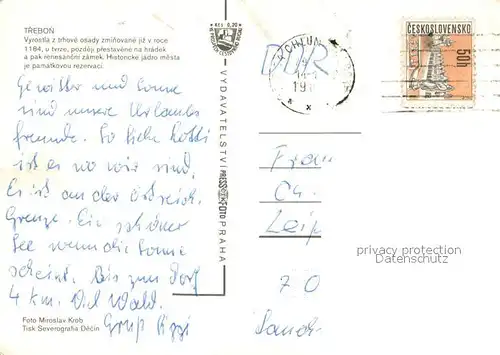 TŘEBOŇ
Vyrostla z trhové osady zmiňované již v roce
1184, u tvrze, později přestavěné na hrádek
a pak renesanční zámek. Historické jádro města
je památkovou rezervací.
Gewitter und Sonne
sind unsere Urlaubs
freunde. So liebe
ist es wo wir sind.
Es ist an der östreich.
Grenze. Ein schöner
See wenn die Sonne
scheint. Bis zum Dorf
4 km. Viel Wald.
Gruß
Foto Miroslav Krob
Tisk Severografia Děčín
Kčs 0,20
VYDAVATELSTVÍ PRESSFOTO PRAHA
DDR
19
ČESKOSLOVENSKO
50h
Frau
Ch.
Leip
70
privacy protection
www.ansichtskartenversand.com